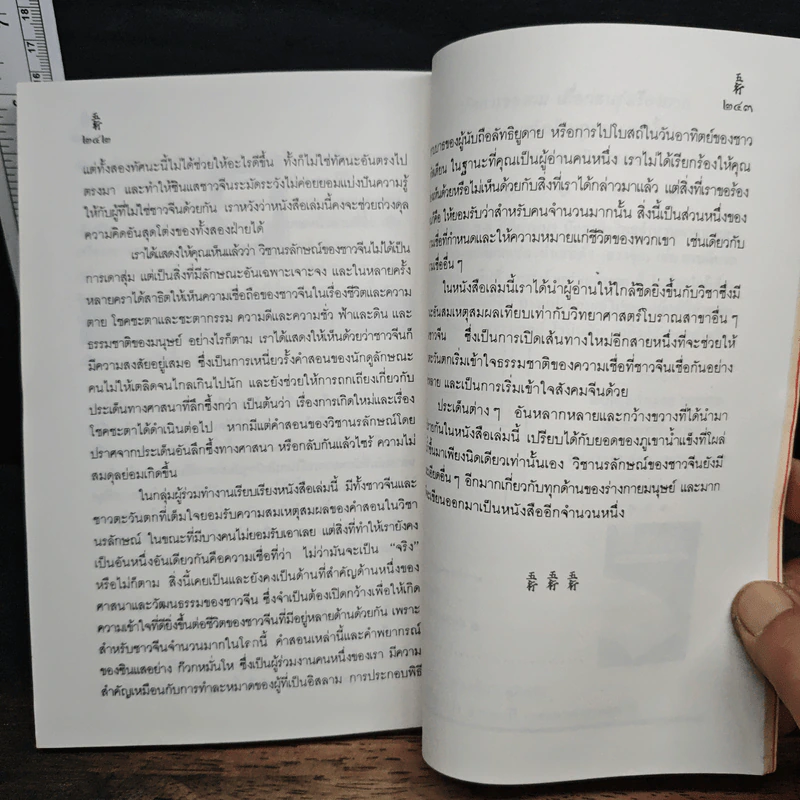 17
18
17
16
五
行
๒๔๒
แต่ทั้งสองทัศนะนี้ไม่ได้ช่วยให้อะไรดีขึ้น ทั้งก็ไม่ใช่ทัศนะอันตรงไป
ตรงมา และทำให้ซินแสชาวจีนระมัดระวังไม่ค่อยยอมแบ่งปันความรู้
ให้กับผู้ที่ไม่ใช่ชาวจีนด้วยกัน เราหวังว่าหนังสือเล่มนี้คงจะช่วยถ่วงดุล
ความคิดอันสุดโต่งของทั้งสองฝ่ายได้
เราได้แสดงให้คุณเห็นแล้วว่า วิชานรลักษณ์ของชาวจีนไม่ได้เป็น
การเดาสุ่ม แต่เป็นสิ่งที่มีลักษณะอันเฉพาะเจาะจง และในหลายครั้ง
หลายคราได้สาธิตให้เห็นความเชื่อถือของชาวจีนในเรื่องชีวิตและความ
ตาย โชคชะตาและชะตากรรม ความดีและความชั่ว ฟ้าและดิน และ
ธรรมชาติของมนุษย์ อย่างไรก็ตาม เราได้แสดงให้เห็นด้วยว่าชาวจีนก็
มีความสงสัยอยู่เสมอ ซึ่งเป็นการเหนี่ยวรั้งคำสอนของนักดูลักษณะ
คนไม่ให้เตลิดจนไกลเกินไปนัก และยังช่วยให้การถกเถียงเกี่ยวกับ
ประเด็นทางศาสนาที่ลึกซึ้งกว่า เป็นต้นว่า เรื่องการเกิดใหม่และเรื่อง
โชคชะตาได้ดำเนินต่อไป หากมีแต่คำสอนของวิชานรลักษณ์โดย
ปราศจากประเด็นอันลึกซึ้งทางศาสนา หรือกลับกันแล้วไซร้ ความไม่
สมดุลย่อมเกิดขึ้น
ในกลุ่มผู้ร่วมทำงานเรียบเรียงหนังสือเล่มนี้ มีทั้งชาวจีนและ
ชาวตะวันตกที่เต็มใจยอมรับความสมเหตุสมผลของคำสอนในวิชา
นรลักษณ์ ในขณะที่มีบางคนไม่ยอมรับเอาเลย แต่สิ่งที่ทำให้เรายังคง
เป็นอันหนึ่งอันเดียวกันคือความเชื่อที่ว่า ไม่ว่ามันจะเป็น “จริง”
หรือไม่ก็ตาม สิ่งนี้เคยเป็นและยังคงเป็นด้านที่สำคัญด้านหนึ่งของ
ศาสนาและวัฒนธรรมของชาวจีน ซึ่งจำเป็นต้องเปิดกว้างเพื่อให้เกิด
ความเข้าใจที่ดียิ่งขึ้นต่อชีวิตของชาวจีนที่มีอยู่หลายด้านด้วยกัน เพราะ
สำหรับชาวจีนจำนวนมากในโลกนี้ คำสอนเหล่านี้และคำพยากรณ์
ของซินแสอย่าง ก๊วกหมั่นโห ซึ่งเป็นผู้ร่วมงานคนหนึ่งของเรา มีความ
สำคัญเหมือนกับการทำละหมาดของผู้ที่เป็นอิสลาม การประกอบพิธี
五
行
๒๔๓
ของผู้นับถือลัทธิยูดาย หรือการไปโบสถ์ในวันอาทิตย์ของชาว
ในฐานะที่คุณเป็นผู้อ่านคนหนึ่ง เราไม่ได้เรียกร้องให้คุณ
ด้วยหรือไม่เห็นด้วยกับสิ่งที่เราได้กล่าวมาแล้ว แต่สิ่งที่เราขอร้อง
ให้ยอมรับว่าสำหรับคนจำนวนมากนั้น สิ่งนี้เป็นส่วนหนึ่งของ
ที่กำหนดและให้ความหมายแก่ชีวิตของพวกเขา เช่นเดียวกับ
อื่น ๆ
ในหนังสือเล่มนี้เราได้นำผู้อ่านให้ใกล้ชิดยิ่งขึ้นกับวิชาซึ่งมี
อันสมเหตุสมผลเทียบเท่ากับวิทยาศาสตร์โบราณสาขาอื่น ๆ
ซึ่งเป็นการเปิดเส้นทางใหม่อีกสายหนึ่งที่จะช่วยให้
เริ่มเข้าใจธรรมชาติของความเชื่อที่ชาวจีนเชื่อกันอย่าง
และเป็นการเริ่มเข้าใจสังคมจีนด้วย
ประเด็นต่าง ๆ อันหลากหลายและกว้างขวางที่ได้นำมา
กันในหนังสือเล่มนี้ เปรียบได้กับยอดของภูเขาน้ำแข็งที่โผล่
มาเพียงนิดเดียวเท่านั้นเอง วิชานรลักษณ์ของชาวจีนยังมี
อื่น ๆ อีกมากเกี่ยวกับทุกด้านของร่างกายมนุษย์ และมาก
เขียนออกมาเป็นหนังสืออีกจำนวนหนึ่ง
五 五 五
行 行 行